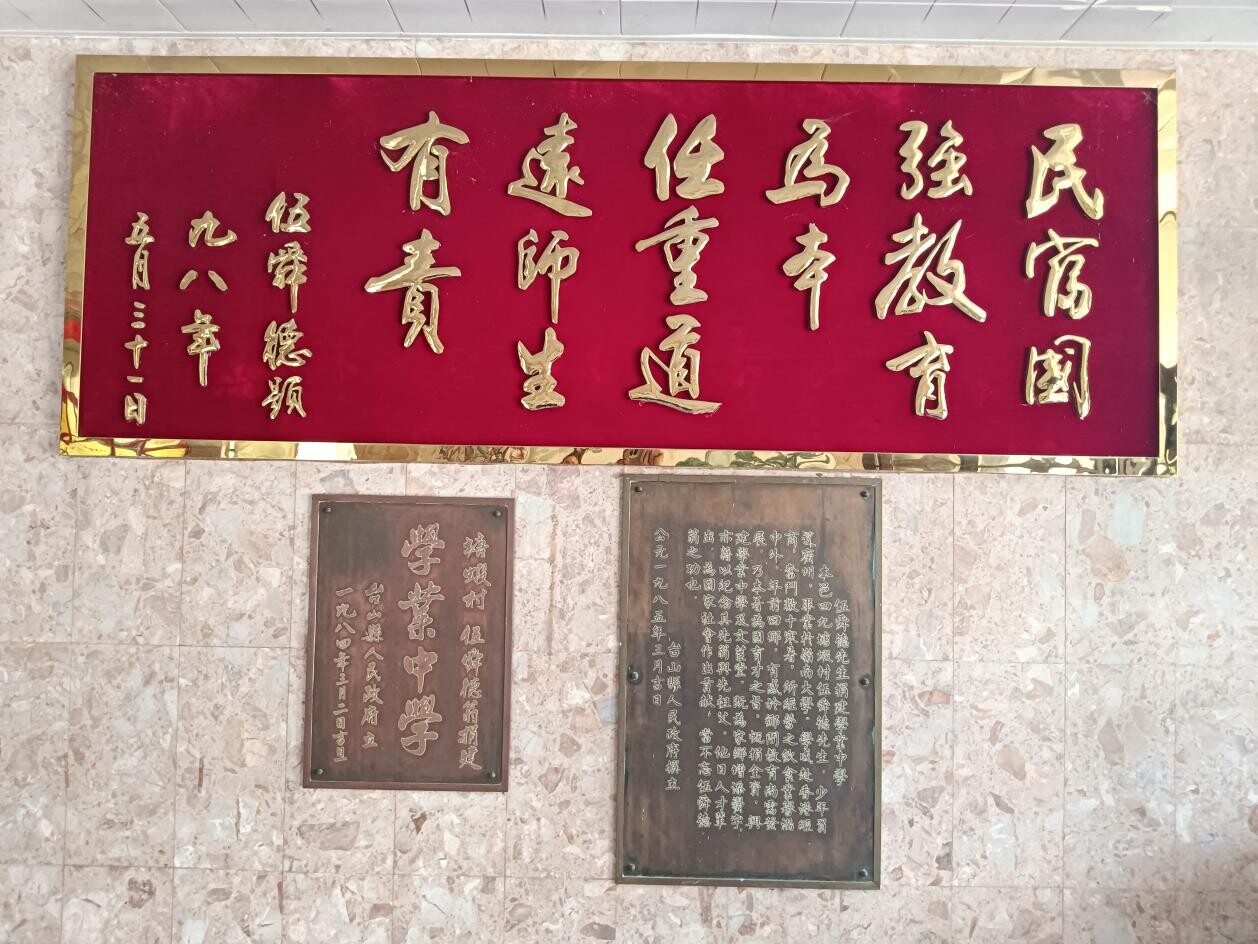 民富國
強教育
為本
任重道
遠師生
有責
伍舜德題
九八年
五月三十一日
塘蝦村 伍舜德翁捐建
學業中學
台山縣人民政府立
一九八四年三月二日吉旦
伍舜德先生捐建學業中學
本邑四九塘蝦村伍舜德先生，少年肄
業廣州，畢業於嶺南大學，學成赴香港經
商，奮鬥數十寒暑，所經營之飲食業馨滿
中外。年前回鄉，有感於鄉閭教育尚需發
展，乃本着為國育才之旨，慨捐金資，興
建學業中學及文荁堂，既為家鄉增添黌宇，
亦藉以紀念其先翁與先祖父。他日人才輩
出，為國家社會作出貢献，當不忘伍舜德
翁之功也。
台山縣人民政府撰立
公元一九八五年三月吉日